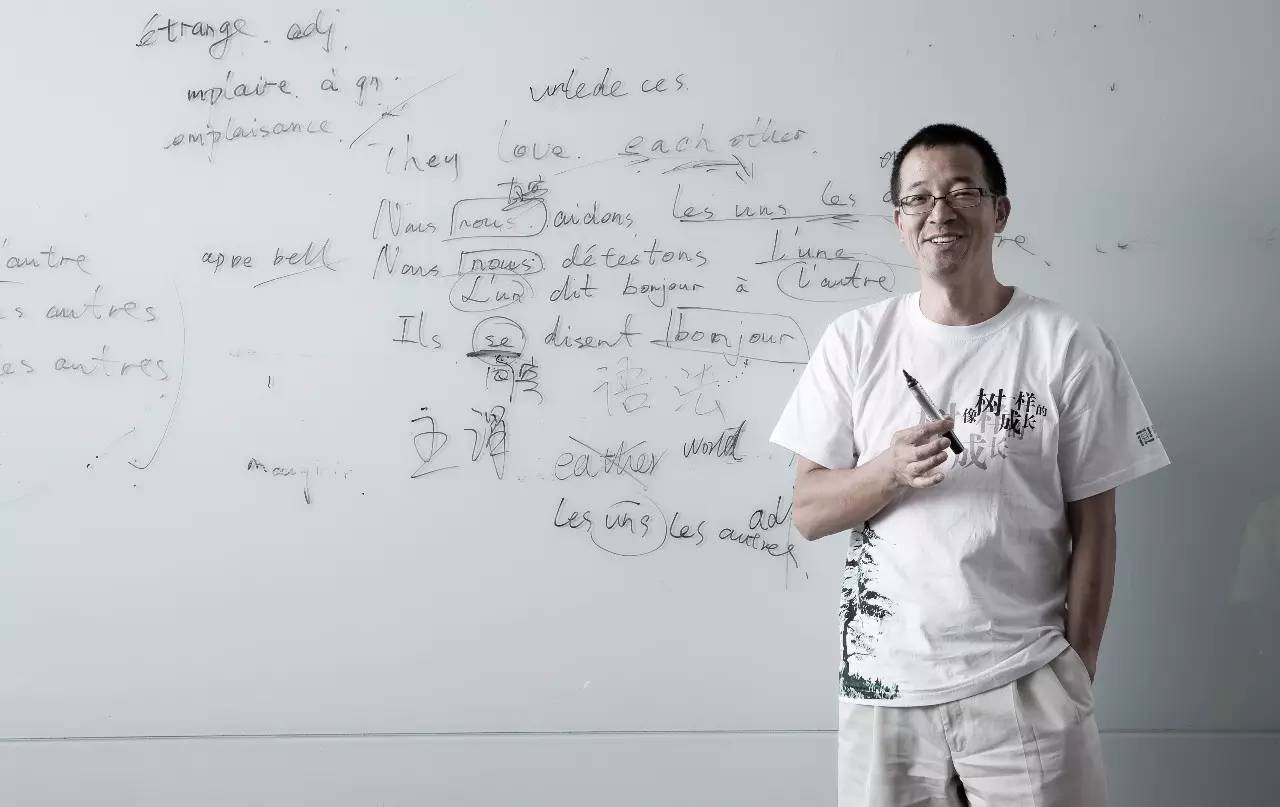 étrange. adj.
mplaire. à qn.
omplaisance.
unledeces.
They love. each other.
直宾
Nous nous. aidons. Les uns les
l'autre
appe bell
Nous nous détestons L'une
es autres
L'un dit bonjour à l'autre
Ils se disent bonjour
es autres
间宾
语法
主谓
eather world
Les uns les autres
adj
像树一样的
成长